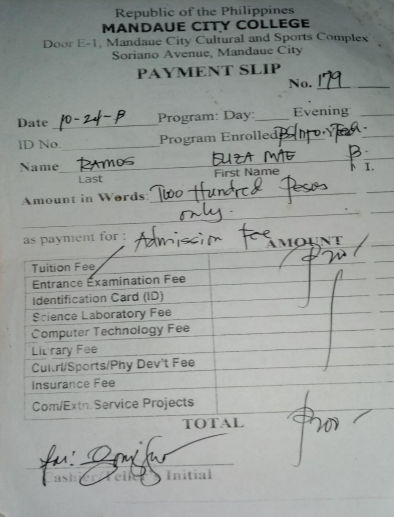 Republic of the Philippines
MANDAUE CITY COLLEGE
Door E-1, Mandaue City Cultural and Sports Complex
Soriano Avenue, Mandaue City
PAYMENT SLIP
No. 179
Date 10-24-P Program: Day: Evening
ID No. Program Enrolled
Name RAMOS ELIZA MAE B.
Last First Name I.
Amount in Words: Two Hundred Pesos
only.
as payment for : Admission Fee
AMOUNT
Tuition Fee
Entrance Examination Fee ₱200/
Identification Card (ID)
Science Laboratory Fee
Computer Technology Fee
Library Fee
Cul./Sports/Phy Dev't Fee
Insurance Fee
Com/Extn Service Projects
TOTAL ₱200 -
for:
Cashier/Teller's Initial